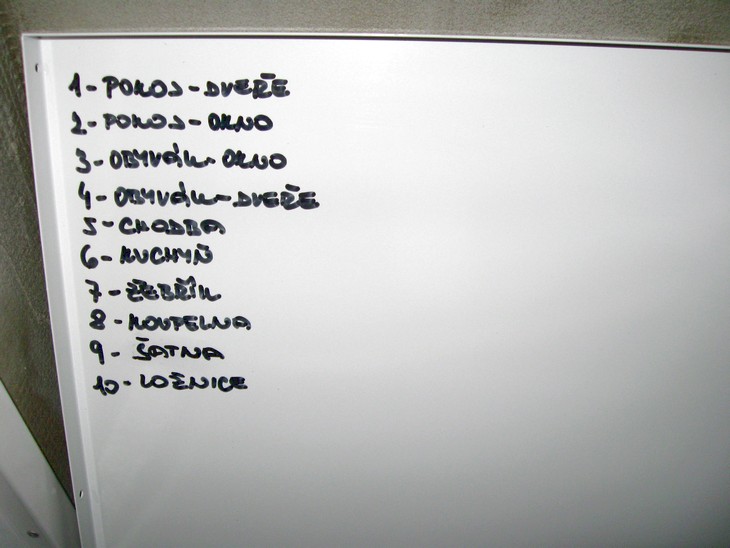 1-POKOJ-DVEŘE
2-POKOJ-OKNO
3-OBÝVÁK-OKNO
4-OBÝVÁK-DVEŘE
5-CHODBA
6-KUCHYŇ
7-ŽEBŘÍK
8-KOUPELNA
9-ŠATNA
10-LOŽNICE